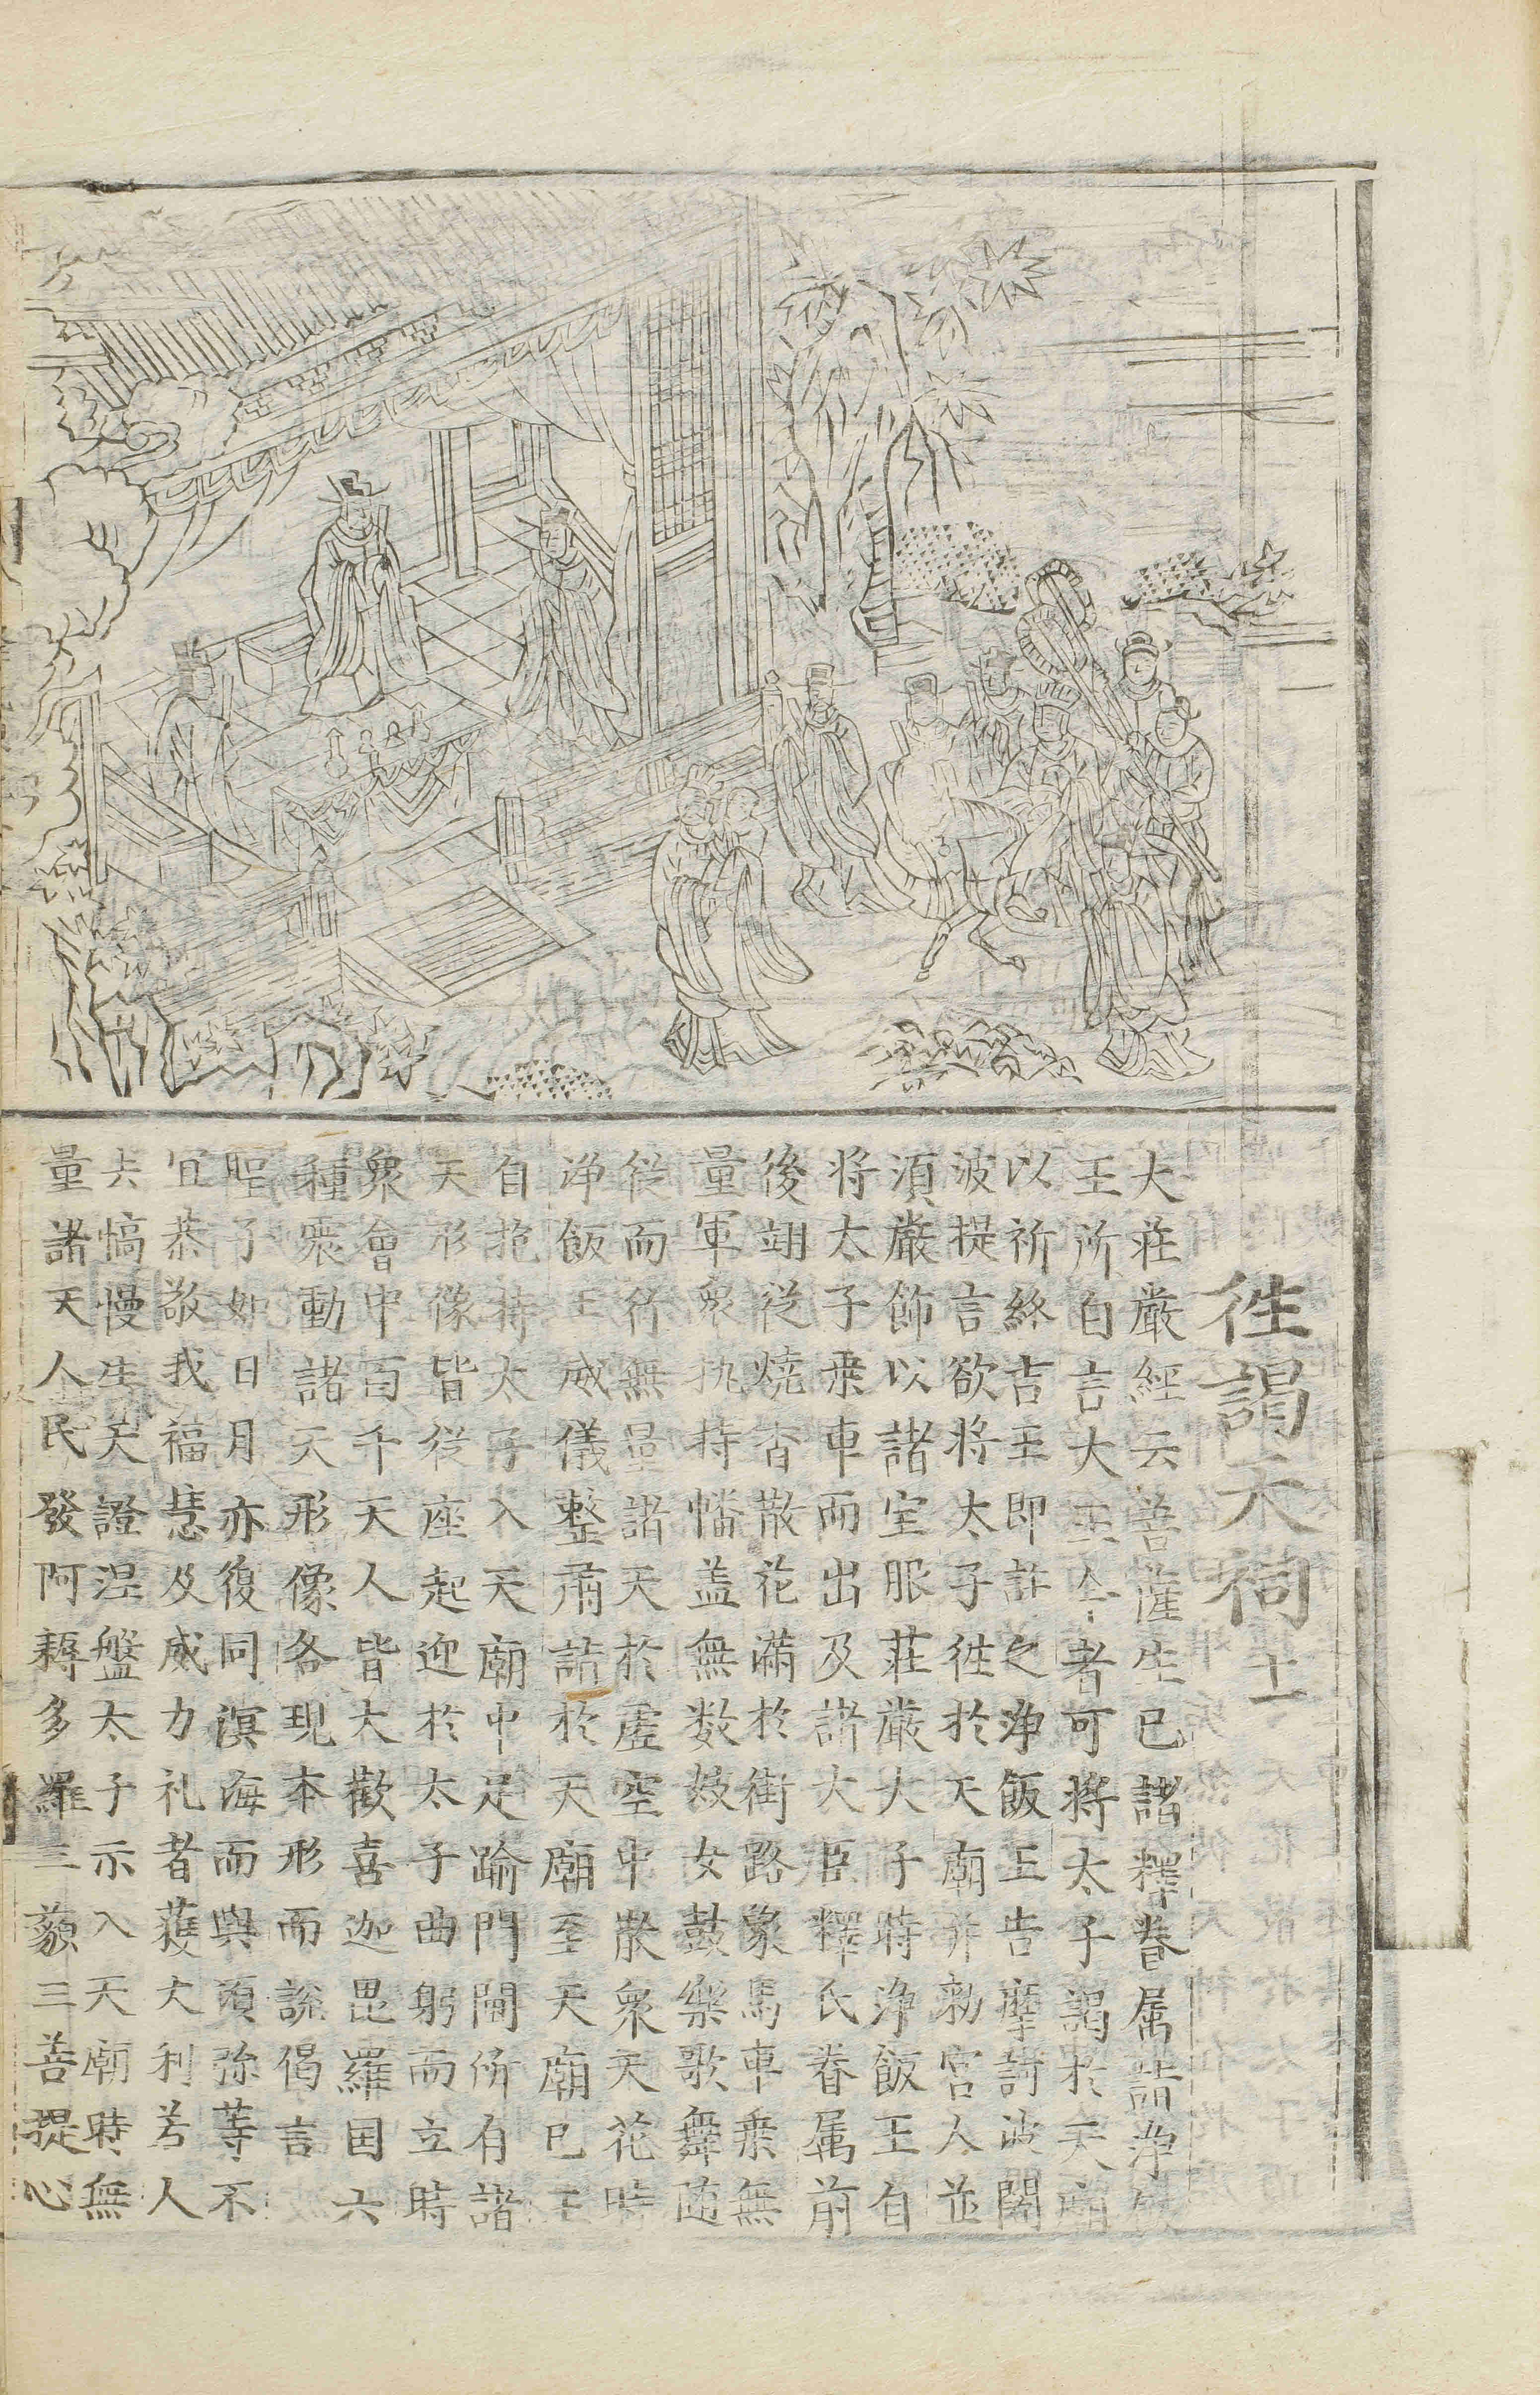 徃謁天祠 十一
大莊嚴經云菩薩生已諸釋眷属請淨飯
王所白言大王今者可將太子謁於天廟
以祈終吉王即許之淨飯王告摩訶波闍
波提言欲將太子徃於天廟并勅宮人並
須嚴飾以諸室服莊嚴大子時淨飯王自
将太子乗車而出及諸大臣釋氏眷属前
後翊從燒香散花滿於街路象馬車乗無
量軍衆执持幡盖無数妓女鼓樂歌舞随
從而行無量諸天於虚空中散衆天花時
淨飯王威儀整肅詣於天廟至天廟已王
自抱持太子入天廟中足踰門閫所有諸
天形像皆從座起迎於太子曲躬而立時
衆會中百千天人皆大歡喜迦毘羅国六
種震動諸天形像各現本形而說偈言
聖了如日月亦復同溟海而與須弥等不
宜恭敬我福慧及威力礼者獲大利若人
去憍慢生天證涅盤太子示入天廟時無
量諸天人民發阿耨多羅三藐三菩提心